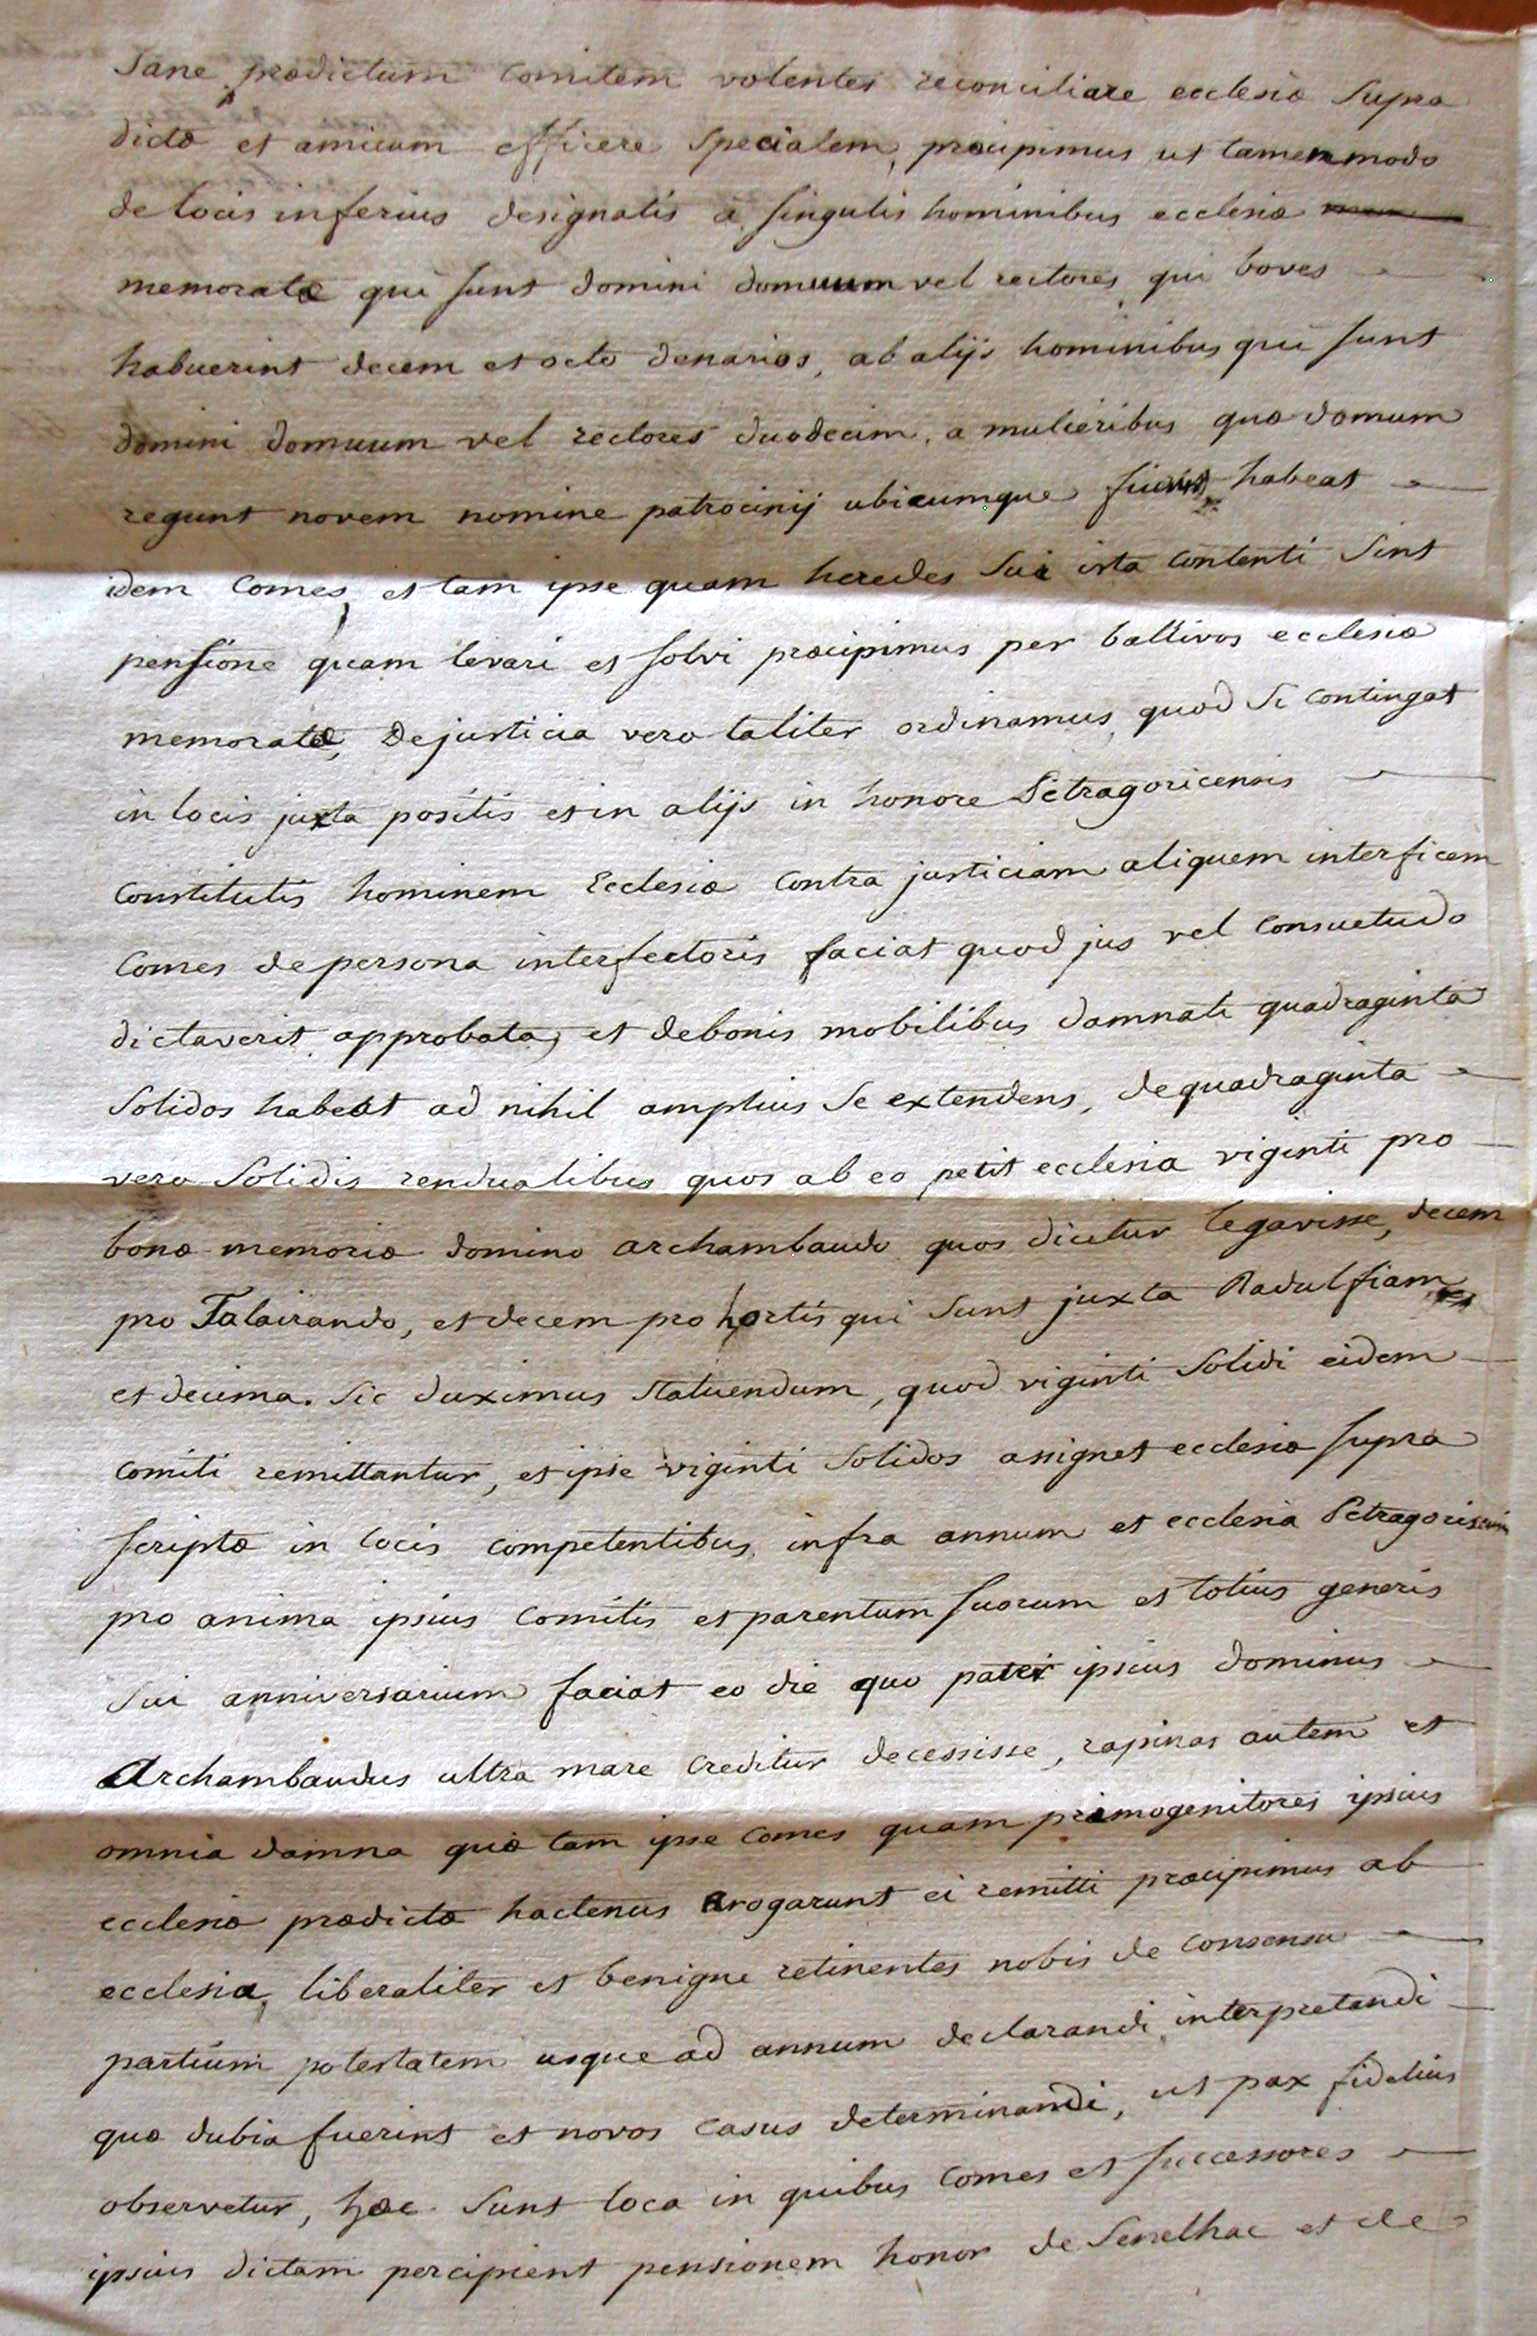 Sane prædictum Comitem volentes reconciliare ecclesiæ Supra
dictæ et amicum efficere Specialem, præcipimus ut tamenmodo
de locis inferius designatis a singulis hominibus ecclesiæ
memoratæ qui sunt domini domuum vel rectores, qui boves
habuerint decem et octo denarios, ab alijs hominibus qui sunt
domini domuum vel rectores duodecim, a mulieribus quæ domum
regunt novem nomine patrocinij ubicumque habeat
idem Comes, et tam ipse quam heredes Sui ista Contenti Sint
pensione quam levari et solvi præcipimus per ballivos ecclesiæ
memoratæ, De justicia vero taliter ordinamus quod Si Contingat
in locis juxta positis et in alijs in honore Petragoricensis
Constitutis hominem Ecclesiæ Contra justiciam aliquem interficem
Comes de persona interfectoris faciat quod jus vel Consuetudo
dictaverit approbata, et de bonis mobilibus damnati quadraginta
Solidos habeat ad nihil amplius Se extendens, de quadraginta
vero Solidis rendualibus quos ab eo petit ecclesia viginti pro
bonæ memoriæ domino archambaudo quos dicitur legavisse, decem
pro Talairando, et decem pro hortis qui Sunt juxta Radulfiam
et decima. Sic duximus statuendum, quod viginti Solidi eidem
Comiti remittantur, et ipse viginti Solidos assignet ecclesiæ supra
scriptæ in locis competentibus infra annum et ecclesia
pro anima ipsius Comitis et parentum suorum et totius generis
Sui anniversarium faciat eo die quo pater ipsius dominus
Archambaudus ultra mare Creditur decessisse, rapinas autem et
omnia damna quæ tam ipse Comes quam primogenitores ipsius
ecclesiæ prædictæ hactenus Rrogarunt ei remitti præcipimus ab
ecclesia, liberaliter et benigne retinentes nobis de Consensu
partium potestatem usque ad annum declarandi interpretandi
quæ dubia fuerint et novos Casus determinandi, ut pax fidelius
observetur, hæc Sunt loca in quibus Comes et successores
ipsius dictam percipient pensionem honor de Senelhac et de